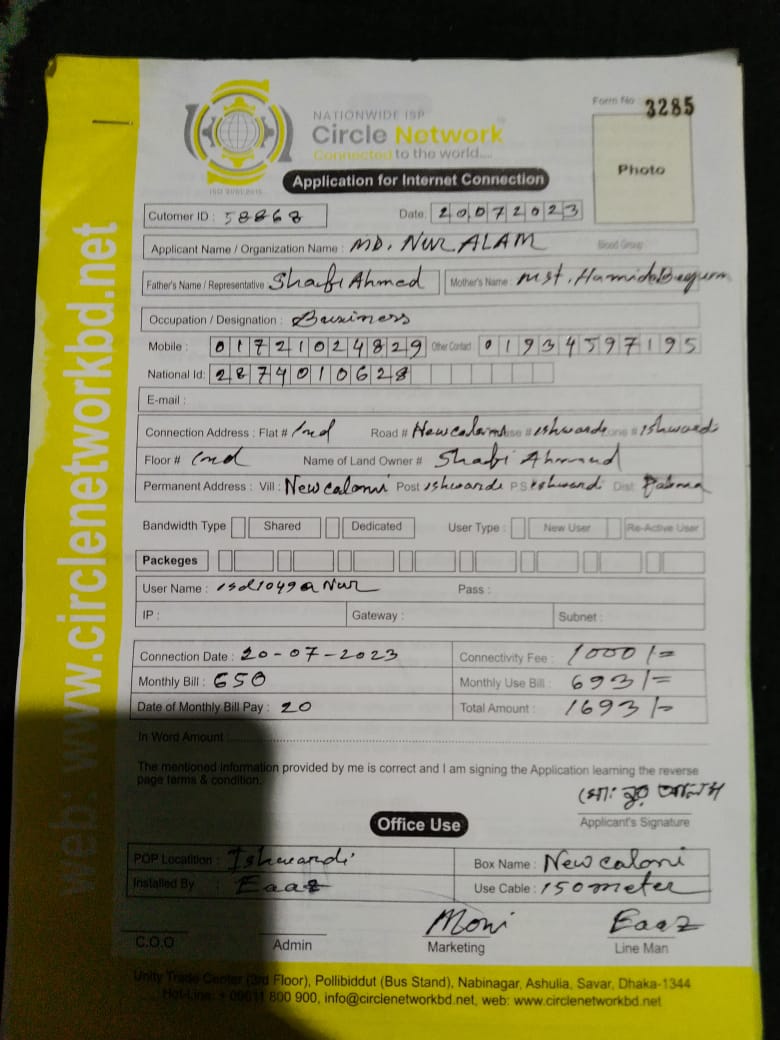 Form No 3285
NATIONWIDE ISP
Circle Network
Connected to the world....
ISO 9001:2015
Photo
Application for Internet Connection
Cutomer ID : 58868 Date: 20072023
Applicant Name / Organization Name : MD. NUR ALAM Blood Group
Father's Name / Representative Shafi Ahmed Mother's Name : Mst. Hamida Begum
Occupation / Designation : Business
Mobile : 01721024829 Other Contact 01934597195
National Id: 2874010628
E-mail :
Connection Address : Flat # Ind Road # New caloni House # ishwardi Zone # Ishwardi
Floor # Ind Name of Land Owner # Shafi Ahmad
Permanent Address : Vill : New caloni Post ishwardi P.S ishwardi Dist Pabna
Bandwidth Type Shared Dedicated User Type : New User Re-Active User
Packeges
User Name : isd1049aNur Pass :
IP : Gateway : Subnet :
Connection Date : 20-07-2023 Connectivity Fee : 1000/=
Monthly Bill : 650 Monthly Use Bill : 693/=
Date of Monthly Bill Pay : 20 Total Amount : 1693/-
In Word Amount :
The mentioned information provided by me is correct and I am signing the Application learning the reverse
page terms & condition.
মো: নুর আলম
Applicant's Signature
Office Use
POP Locatition : Ishwardi Box Name : New caloni
Installed By : Eaaz Use Cable : 150 meter
Moni Eaaz
C.O.O Admin Marketing Line Man
Unity Trade Center (3rd Floor), Pollibiddut (Bus Stand), Nabinagar, Ashulia, Savar, Dhaka-1344
Hot-Line: + 09611 800 900, info@circlenetworkbd.net, web: www.circlenetworkbd.net
web: www.circlenetworkbd.net